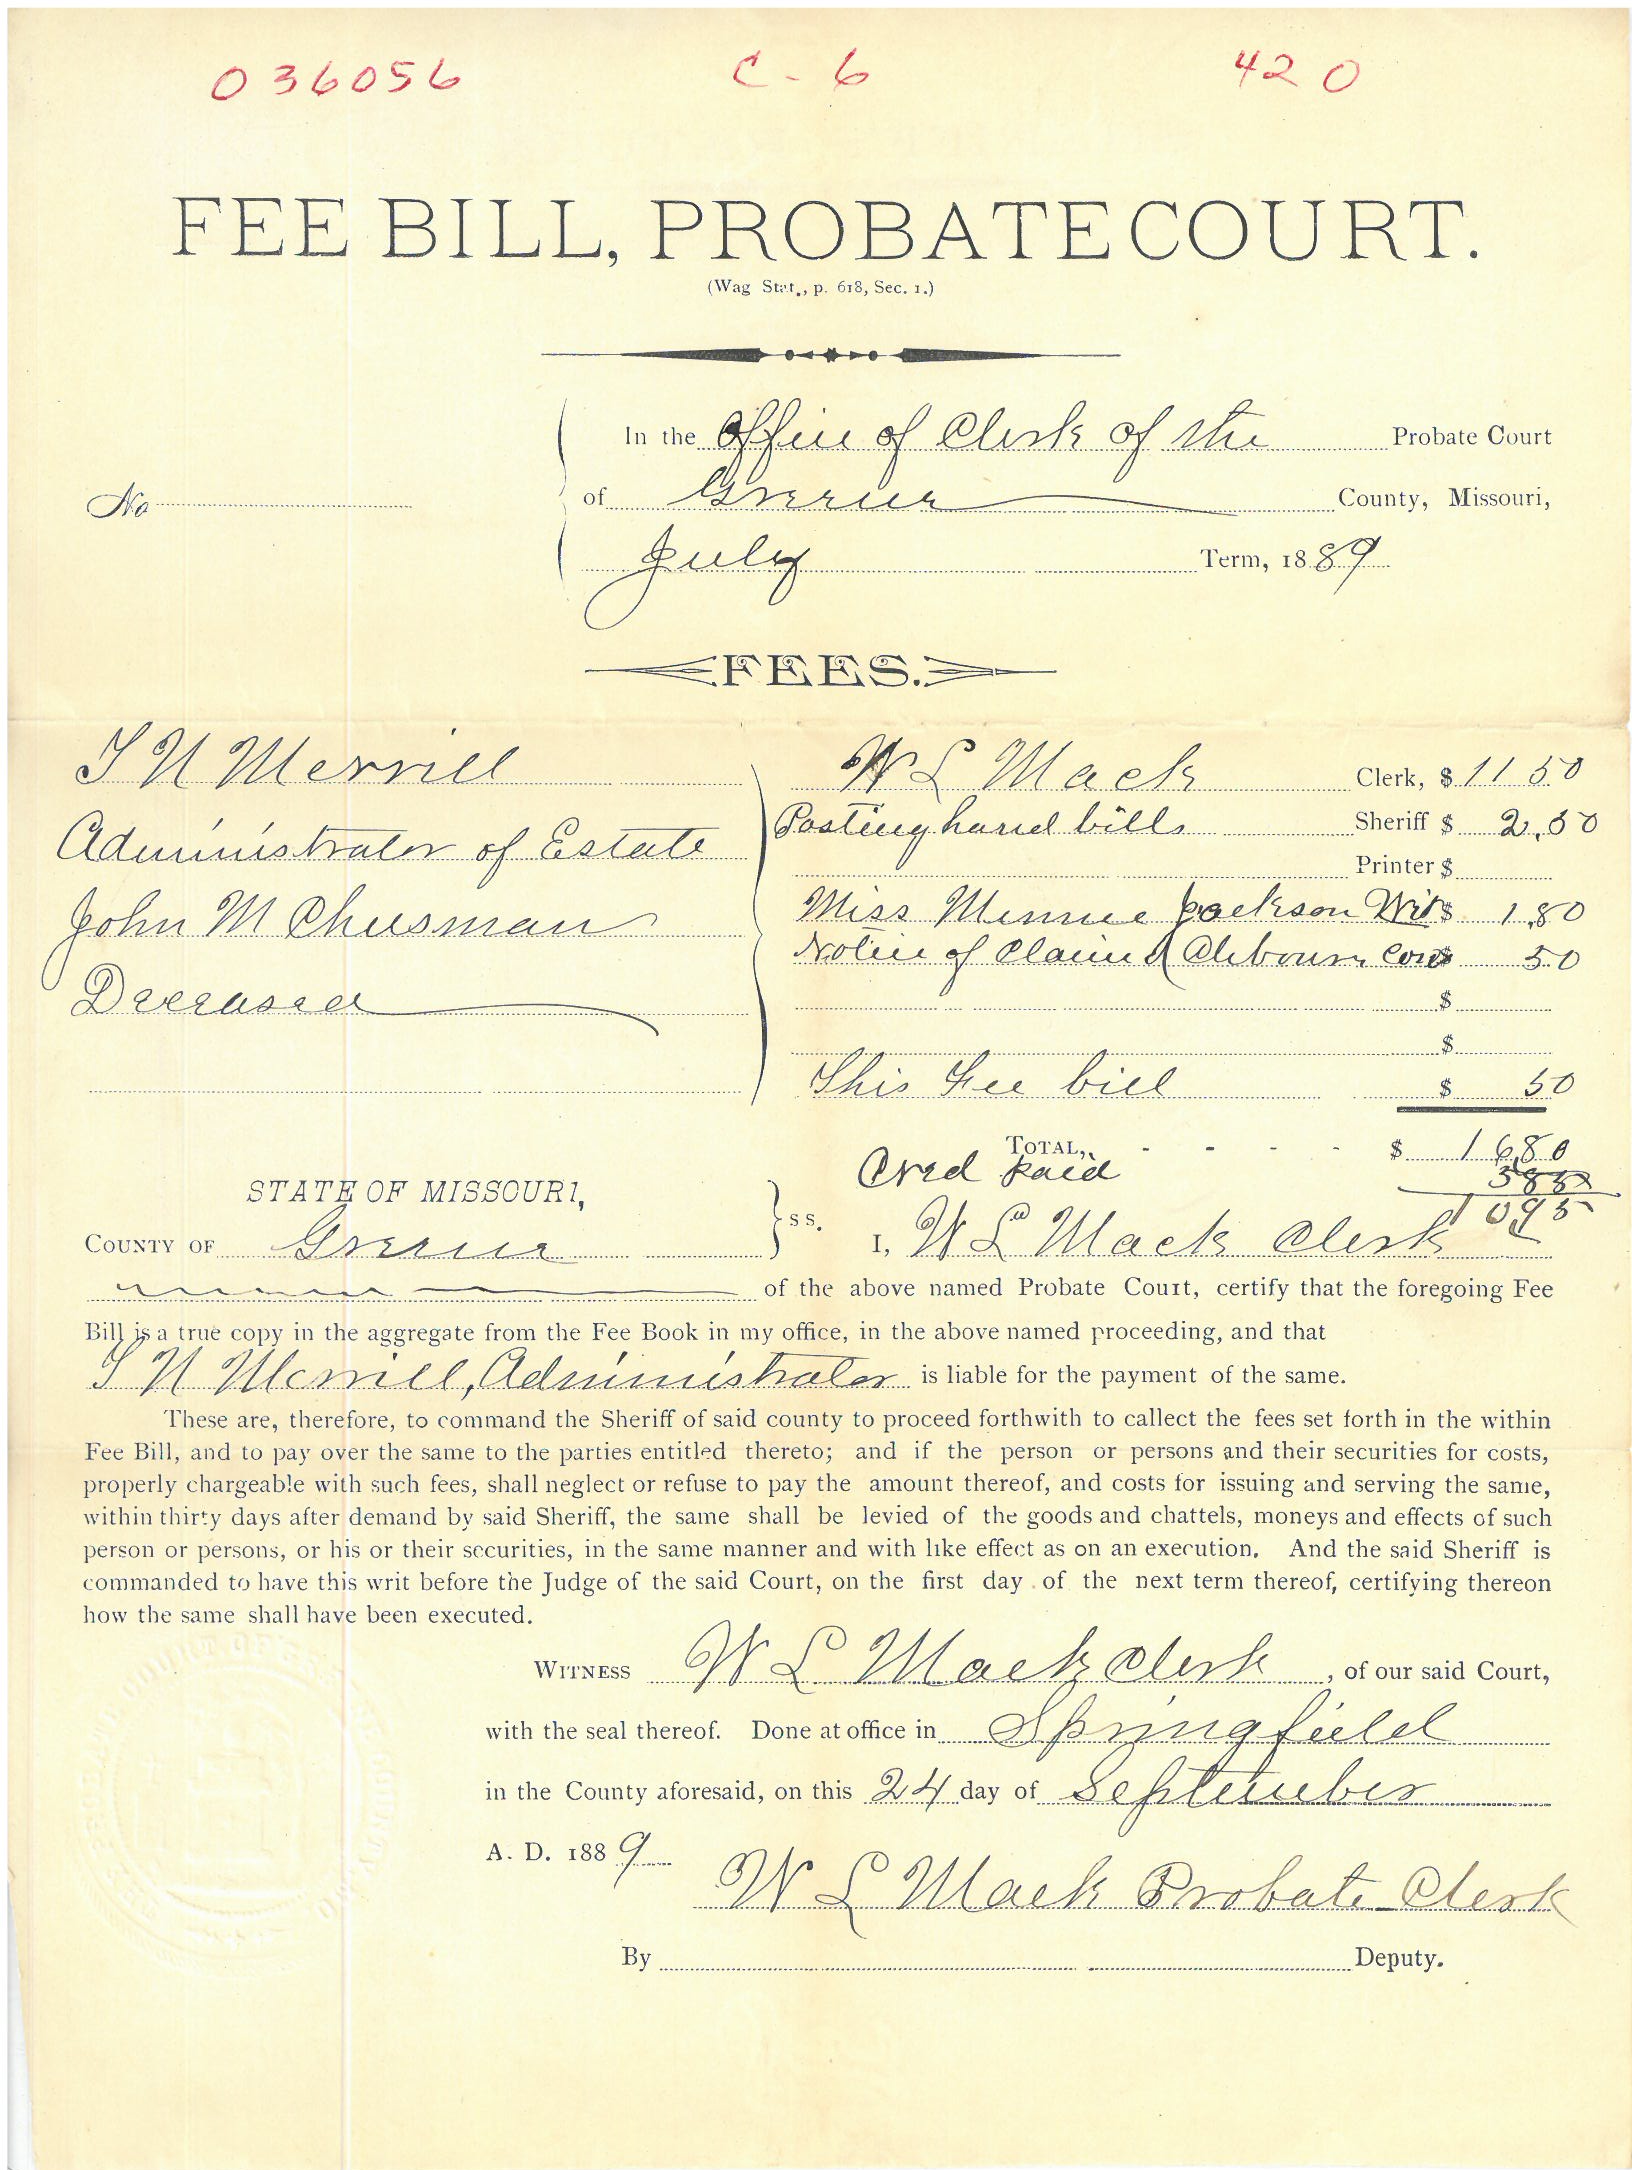 036056 C-6 420
FEE BILL, PROBATE COURT.
(Wag Stat., p. 618, Sec. 1.)
In the Office of Clerk of the Probate Court
No
of Greene County, Missouri,
July Term, 1889
FEES.
W L Mack Clerk, $ 11 50
Posting hand bills Sheriff $ 2.50
Printer $
Miss Minnie Jackson Wit $ 1.80
Notice of Claim Clebourn Cons $ 50
$
$
This Fee bill $ 50
S N Merrill
Administrator of Estate
John M Chusman
Deceased
TOTAL, - - - - $ 16 80
Cred paid
10 95
STATE OF MISSOURI,
COUNTY OF Greene } ss. I, W L Mack Clerk
of the above named Probate Court, certify that the foregoing Fee
Bill is a true copy in the aggregate from the Fee Book in my office, in the above named proceeding, and that
S N Merrill, Administrator is liable for the payment of the same.
These are, therefore, to command the Sheriff of said county to proceed forthwith to callect the fees set forth in the within
Fee Bill, and to pay over the same to the parties entitled thereto; and if the person or persons and their securities for costs,
properly chargeable with such fees, shall neglect or refuse to pay the amount thereof, and costs for issuing and serving the same,
within thirty days after demand by said Sheriff, the same shall be levied of the goods and chattels, moneys and effects of such
person or persons, or his or their securities, in the same manner and with like effect as on an execution. And the said Sheriff is
commanded to have this writ before the Judge of the said Court, on the first day of the next term thereof, certifying thereon
how the same shall have been executed.
WITNESS W L Mack Clerk, of our said Court,
with the seal thereof. Done at office in Springfield
in the County aforesaid, on this 24 day of September
A. D. 1889
W L Mack Probate Clerk
By Deputy.